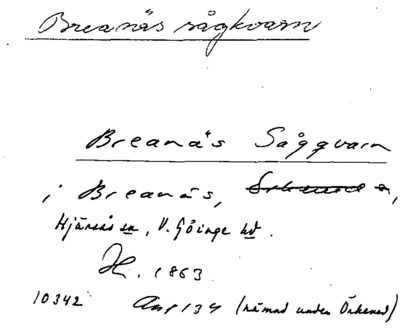 Breanäs sågkvarn
Breanäs Sågqvarn
i Breanäs, Örkened sn,
Hjärsås sn, V. Göinge hd.
H. 1863
10342 Anr 134 (nämnd under Örkened)